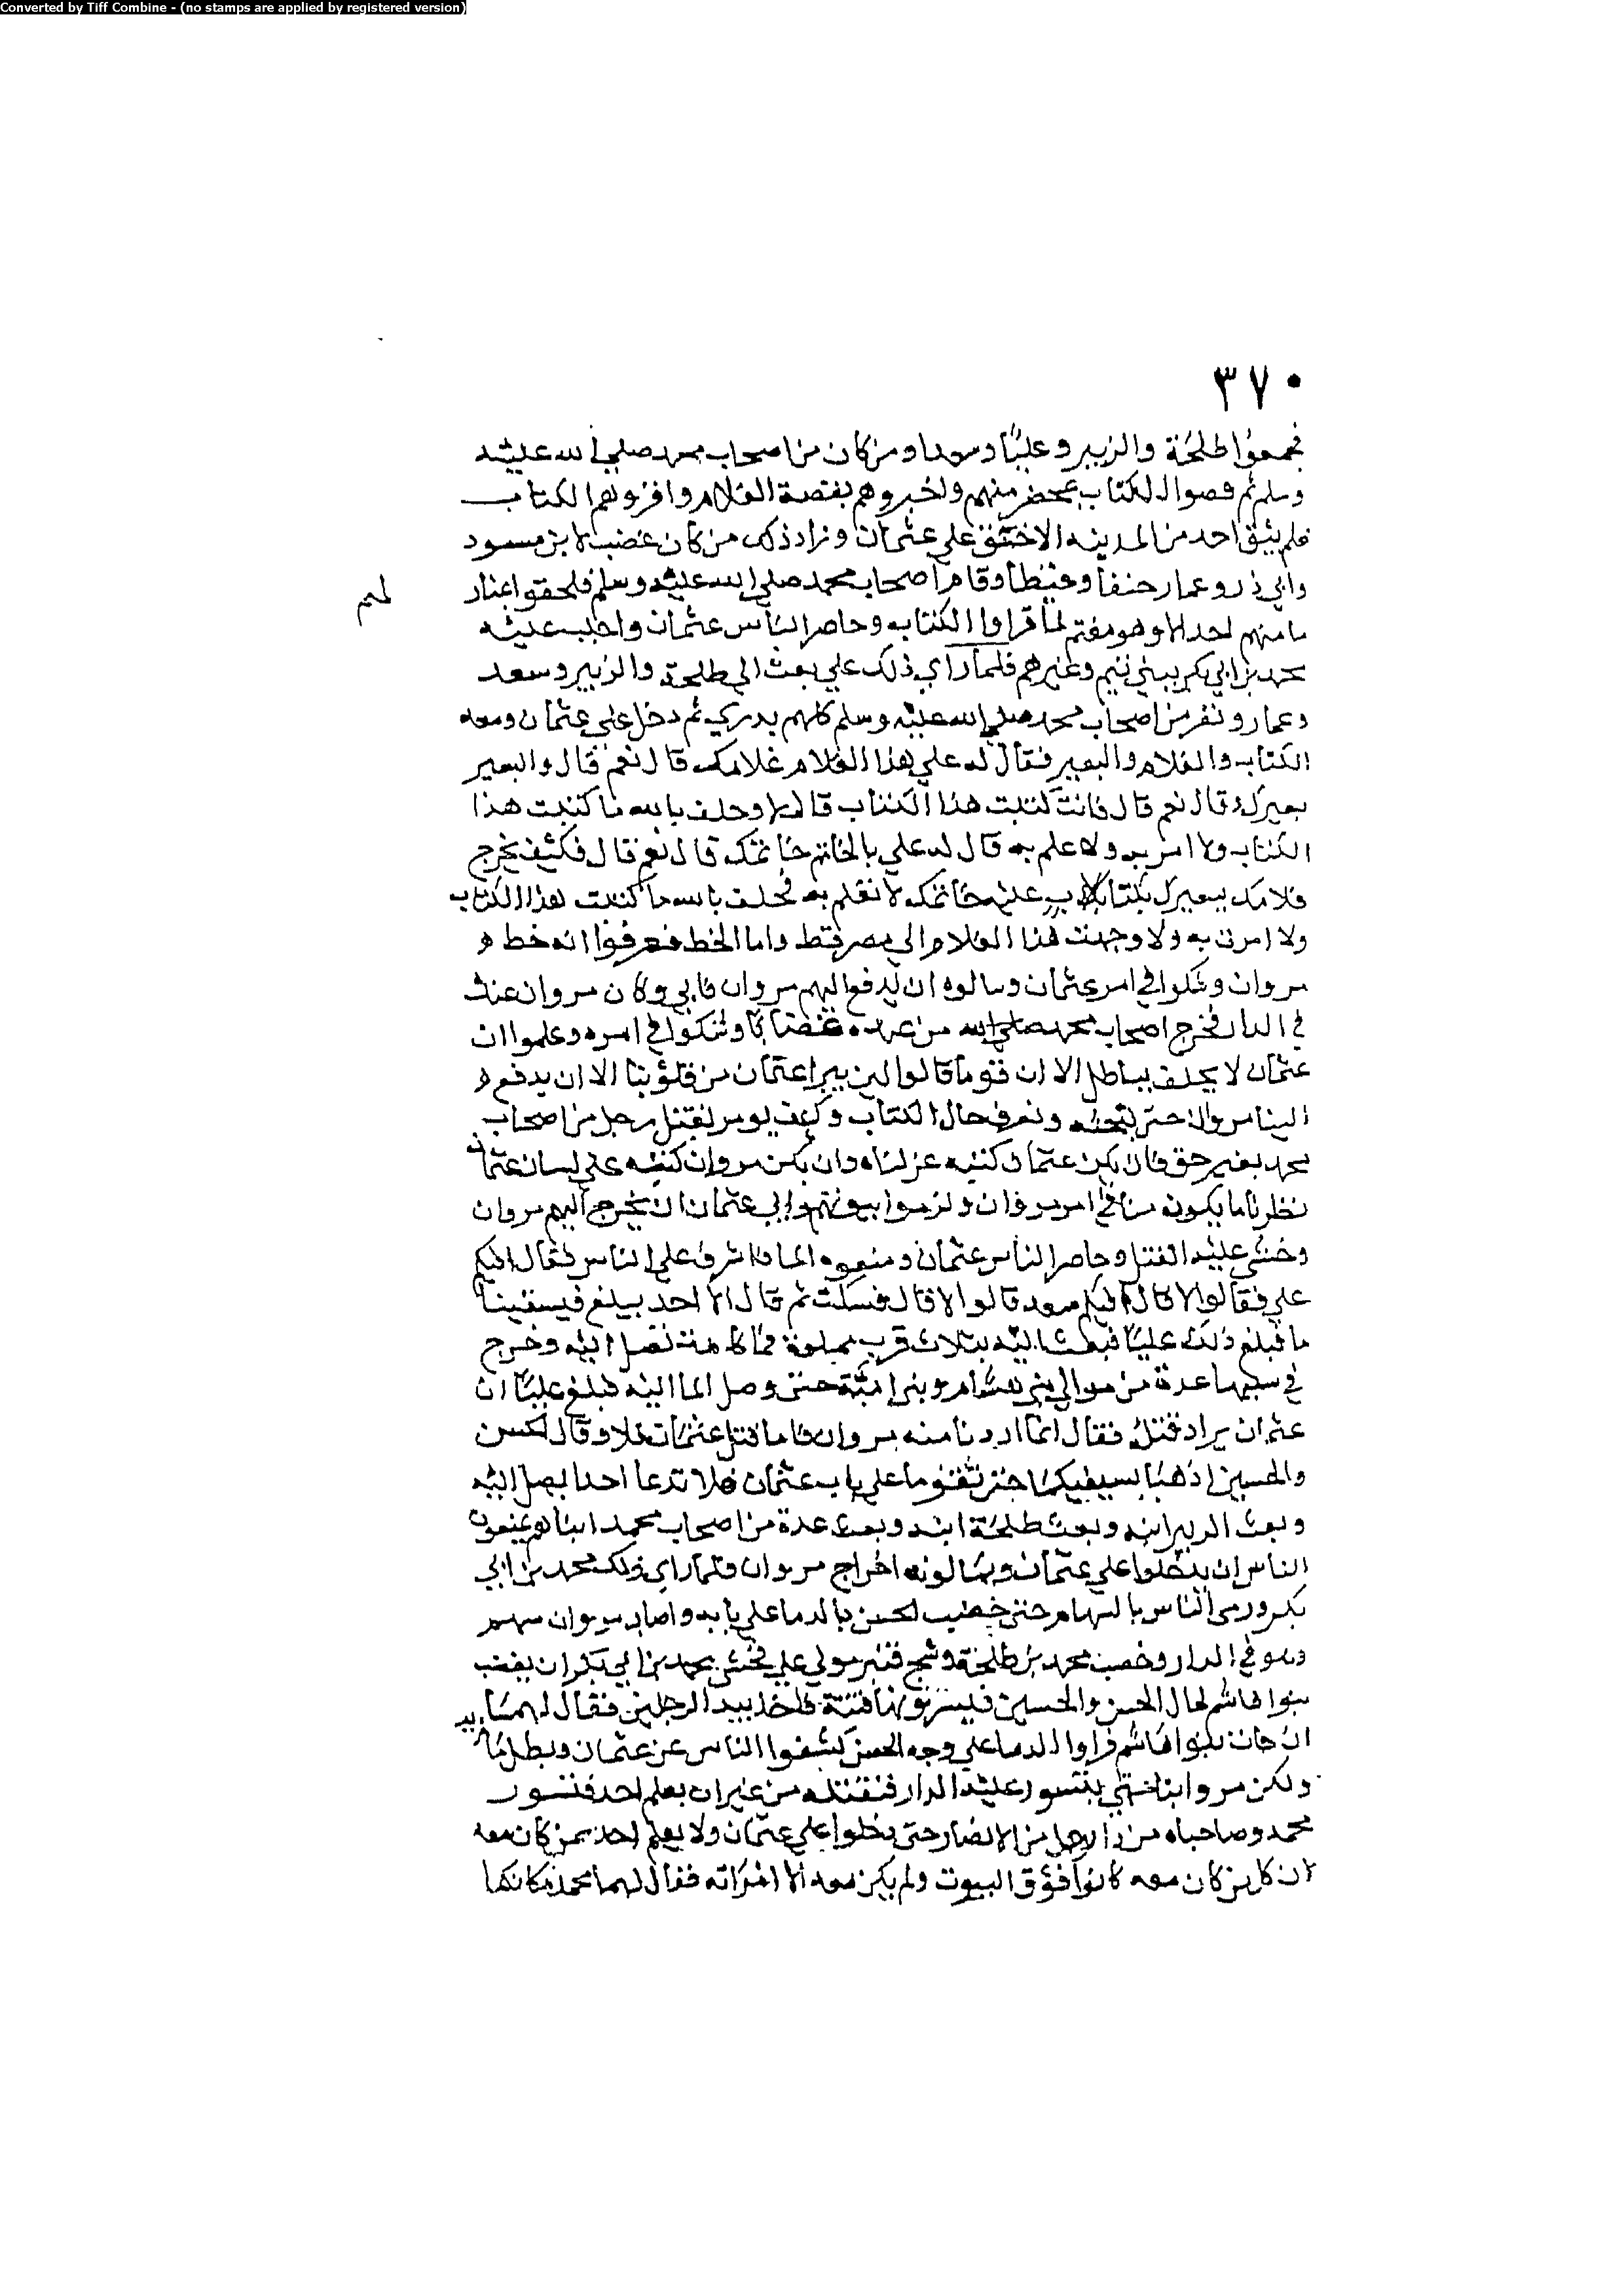 Converted by Tiff Combine - (no stamps are applied by registered version)
٣٧٠
فجمعوا طلحة والزبير وعليا وسعدا ومن كان من اصحاب محمد صلي الله عليه
وسلم ثم فضوا الكتاب بمحضر منهم واخبروهم بقصة الغلام واقروهم الكتاب
فلم يبق احد من المدينه الا حنق علي عثمان وزاد ذلك من كان غضب لابن مسعود
وابي ذر وعمار حنفا وغيظا وقام اصحاب محمد صلي الله عليه وسلم فلحقوا بمنازلهم
ما منهم احد الا وهو مغتم لما قراوا الكتاب وحاصر الناس عثمان واجلب عليه
محمد بن ابي بكر ببني تيم وغيرهم فلما راي ذلك علي بعث الي طلحة والزبير وسعد
وعمار ونفر من اصحاب محمد صلي الله عليه وسلم كلهم بدري ثم دخل علي عثمان ومعه
الكتاب والغلام والبعير فقال له علي هذا الغلام غلامك قال نعم قال والبعير
بعيرك قال نعم قال فانت كتبت هذا الكتاب قال لا وحلف بالله ما كتبت هذا
الكتاب ولا امر به ولا علم به قال له علي بالخاتم خاتمك قال نعم قال فكيف يخرج
غلامك ببعيرك بكتاب عليه خاتمك لا تعلم به فحلف بالله ما كتبت هذا الكتاب
ولا امرت به ولا وجهت هذا الغلام الي مصر قط واما الخط فعرفوا انه خط
مروان وشكوا في امر عثمان وسالوه ان يدفع اليهم مروان فابي وكان مروان عنده
في الدار فخرج اصحاب محمد صلي الله من عنده غضابا وشكوا في امره وعلموا ان
عثمان لا يحلف بباطل الا ان قوما قالوا لن يبرا عثمان من قلوبنا الا ان يدفع
الينا مروان حتي نبحثه ونعرف حال الكتاب وكيف يومر بقتل رجل من اصحاب
محمد بغير حق فان يكن عثمان كتبه عزلناه وان يكن مروان كتبه علي لسان عثمان
نظرنا ما يكون منا في امر مروان ولزموا بيوتهم وابي عثمان ان يخرج اليهم مروان
وخشي عليه القتل وحاصر الناس عثمان ومنعوه الما فاشرف علي الناس فقال افيكم
علي فقالوا لا قال افيكم سعد قالوا لا قال فسكت ثم قال الا احد يبلغ فيسقينا
ما فبلغ ذلك عليا فبعث اليه بثلاث قرب مملوة فما كادت تصل اليه وخرج
في سببها عدة من موالي بني هشام وبني امية حتي وصل الما اليه فبلغ عليا ان
عثمان يراد قتله فقال انما اردنا منه مروان فاما قتل عثمان فلا وقال للحسن
والحسين اذهبا بسيفيكما حتي تقوما علي باب عثمان فلا تدعا احدا يصل اليه
وبعث الزبير ابنه وبعث طلحة ابنه وبعث عدة من اصحاب محمد ابناهم يمنعون
الناس ان يدخلوا علي عثمان ويسالونه اخراج مروان فلما راي ذلك محمد بن ابي
بكر ورمي الناس بالسهام حتي خضب الحسن بالدما علي بابه واصاب مروان سهم
وهو في الدار وخضب محمد بن طلحة وشج قنبر مولي علي فخشي محمد بن ابي بكر ان يغضب
بنوا هاشم لحال الحسن والحسين فيثيرونها فتنة فاخذ بيد الرجلين فقال لهما
ان جات بنوا هاشم فراوا الدما علي وجه الحسن كشفوا الناس عن عثمان وبطل ما نريد
ولكن مروا بنا حتي نتسور عليه الدار فنقتله من غير ان يعلم احد فتسور
محمد وصاحباه من دار رجل من الانصار حتي دخلوا علي عثمان ولا يعلم احد ممن كان معه
لان كل من كان معه كانوا فوق البيوت ولم يكن معه الا امراته فقال لهما محمد مكانكما